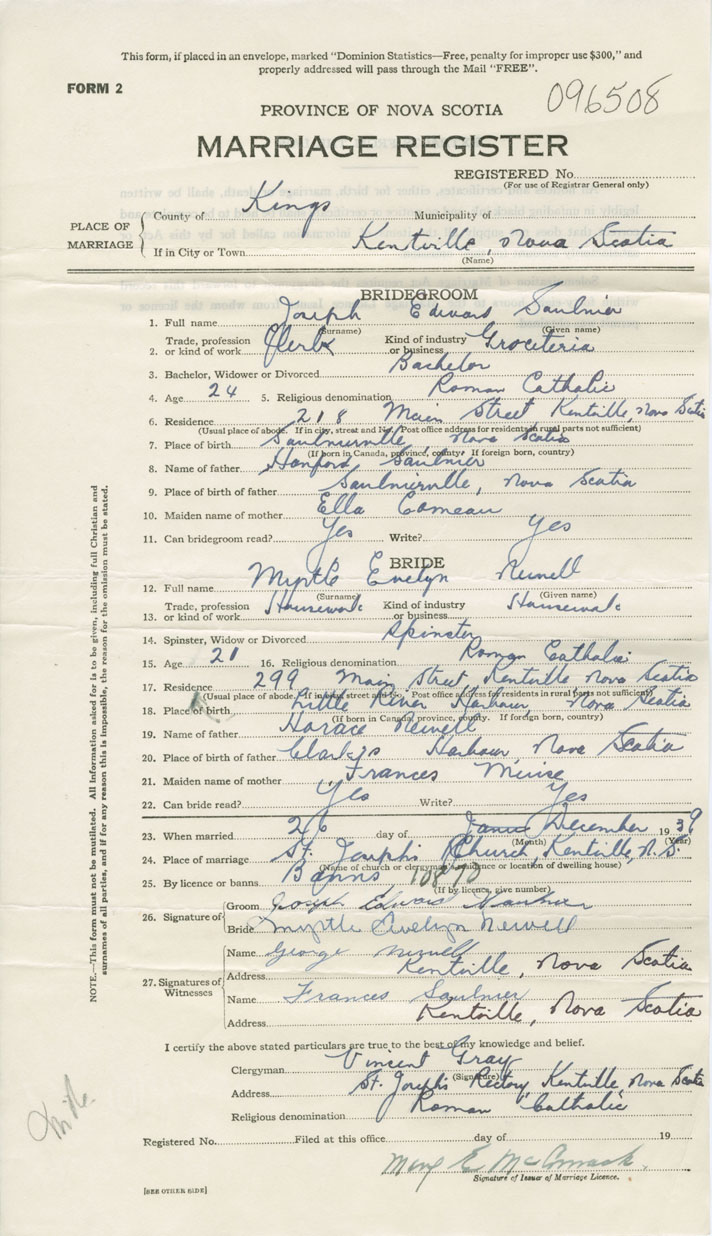 This form, if placed in an envelope, marked "Dominion Statistics—Free, penalty for improper use $300," and
properly addressed will pass through the Mail "FREE".
FORM 2
096508
PROVINCE OF NOVA SCOTIA
MARRIAGE REGISTER
REGISTERED No.
(For use of Registrar General only)
PLACE OF MARRIAGE
County of Kings Municipality of
If in City or Town Kentville, Nova Scotia
(Name)
BRIDEGROOM
1. Full name Joseph Edward Saulnier
(Surname) (Given name)
2. Trade, profession or kind of work Clerk Kind of industry or business Groceteria
3. Bachelor, Widower or Divorced Bachelor
4. Age 24 5. Religious denomination Roman Catholic
6. Residence 218 Main Street Kentville, Nova Scotia
(Usual place of abode. If in city, street and No. Post office address for residents in rural parts not sufficient)
7. Place of birth Saulnierville, Nova Scotia
(If born in Canada, province, county. If foreign born, country)
8. Name of father Hanford Saulnier
9. Place of birth of father Saulnierville, Nova Scotia
10. Maiden name of mother Ella Comeau
11. Can bridegroom read? Yes Write? Yes
BRIDE
12. Full name Myrtle Evelyn Newell
(Surname) (Given name)
13. Trade, profession or kind of work Housework Kind of industry or business Housework
14. Spinster, Widow or Divorced Spinster
15. Age 21 16. Religious denomination Roman Catholic
17. Residence 299 Main Street, Kentville Nova Scotia
(Usual place of abode. If in city, street and No. Post office address for residents in rural parts not sufficient)
18. Place of birth Little River Harbour, Nova Scotia
(If born in Canada, province, county. If foreign born, country)
19. Name of father Horace Newell
20. Place of birth of father Clark's Harbour, Nova Scotia
21. Maiden name of mother Frances Muise
22. Can bride read? Yes Write? Yes
23. When married 26 day of December 1939
(Month) (Year)
24. Place of marriage St. Joseph's Church, Kentville, N.S.
(Name of church or clergyman's residence or location of dwelling house)
25. By licence or banns Banns 10870
(If by licence, give number)
26. Signature of
Groom Joseph Edward Saulnier
Bride Myrtle Evelyn Newell
27. Signatures of Witnesses
Name George Newell
Address Kentville, Nova Scotia
Name Frances Saulnier
Address Kentville, Nova Scotia
I certify the above stated particulars are true to the best of my knowledge and belief.
Clergyman Vincent Gray
(Signature)
Address St. Joseph's Rectory, Kentville, Nova Scotia
Religious denomination Roman Catholic
Registered No. Filed at this office day of 19
Mary E. McCormack.
Signature of Issuer of Marriage Licence.
[SEE OTHER SIDE]
NOTE.—This form must not be mutilated. All Information asked for is to be given, including full Christian and
surnames of all parties, and if for any reason this is impossible, the reason for the omission must be stated.